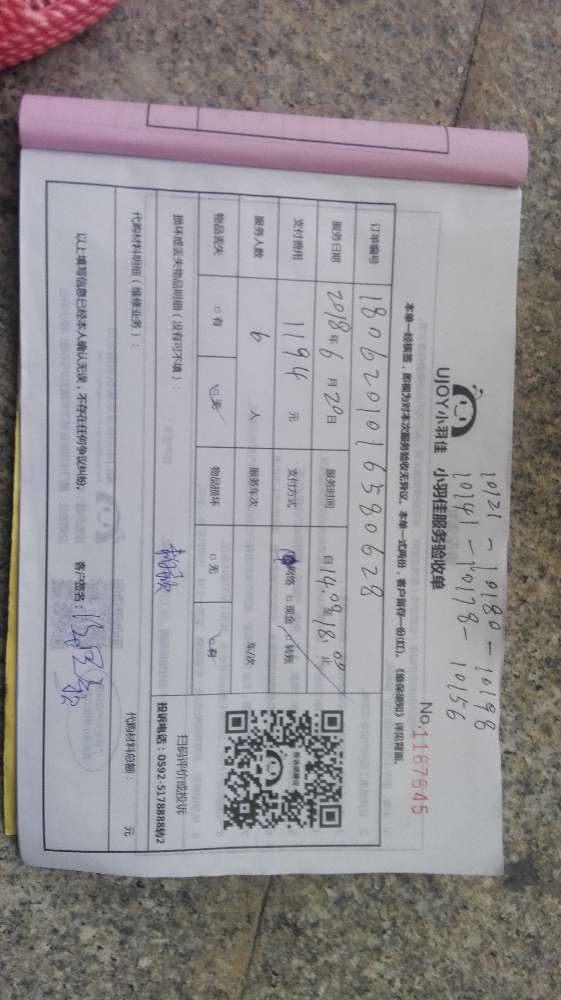 10121 - 10180 - 10198
10141 - 10178 - 10156
UJOY小羽佳 小羽佳服务验收单
No.1167645
本单一经接签，即视为对本次服务验收无异议。本单一式两份，客户留存一份(红)。《维保须知》详见背面。
订单编号 1806201016580628
服务日期 2018年6月20日 服务时间 自14:00至18:00止
支付费用 1194元 支付方式 网络 □现金 □转账
服务人数 6人 服务车次 车/次
物品丢失 □有 □无 物品损坏 □无 □有
损坏或丢失物品明细（没有可不填）：
扫码评价或投诉
投诉电话：0592-5178888转2
代购材料明细（维修业务）：
代购材料总额： 元
以上填写信息已经本人确认无误，不存在任何争议纠纷。 客户签名：